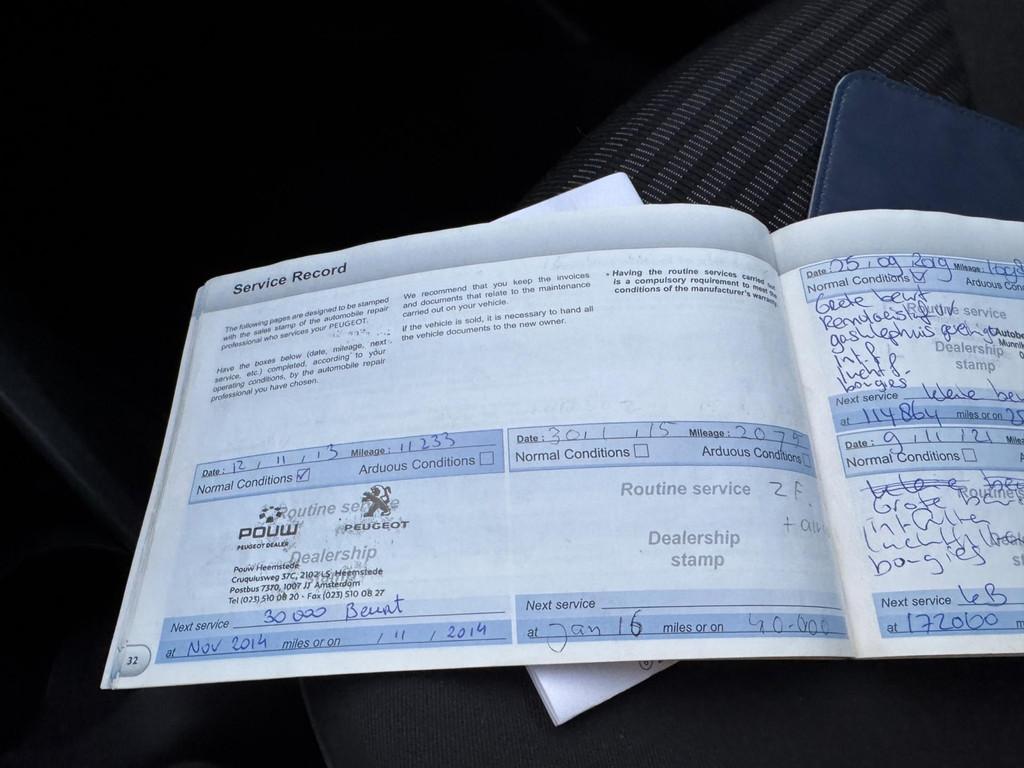 Service Record
The following pages are designed to be stamped
with the sales stamp of the automobile repair
professional who services your PEUGEOT.
Have the boxes below (date, mileage, next
service, etc.) completed, according to your
operating conditions, by the automobile repair
professional you have chosen.
We recommend that you keep the invoices
and documents that relate to the maintenance
carried out on your vehicle.
If the vehicle is sold, it is necessary to hand all
the vehicle documents to the new owner.
• Having the routine services carried out
is a compulsory requirement to meet the
conditions of the manufacturer's warranty
Date : 12 , 11 , 13 Mileage : 11233
Normal Conditions ☑ Arduous Conditions
Routine service
POUW
PEUGEOT DEALER
PEUGEOT
Dealership
stamp
Pouw Heemstede
Cruquiusweg 37C, 2102 LS Heemstede
Postbus 7370, 1007 JJ Amsterdam
Tel (023) 510 08 20 - Fax (023) 510 08 27
Next service 30 000 Beurt
at Nov 2014 miles or on / 11 / 2014
32
Date : 30 1 15 Mileage :
Normal Conditions Arduous Conditions
Routine service
Dealership
stamp
Next service
at Jan 16 miles or on 40.000
Date : 25 , 09 , 2019 Mileage :
Normal Conditions ☑ Arduous Con
Grote beurt
Routine service
Dealership
stamp
int. f.
lucht f.
bougies
Next service kleine beu
at 114864 miles or on
Date : 9 , 11 , 21 Mile
Normal Conditions
Grote
bougies
Next service
at 172000 m